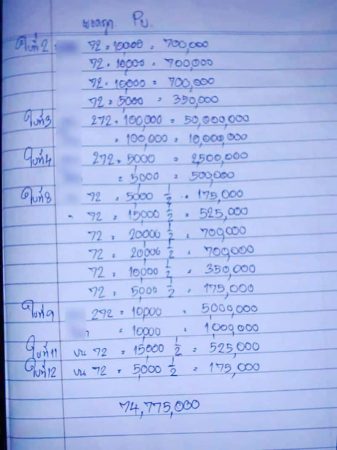 ยอดถูก Pu.
ใบที่2 72 = 10000 = 700,000
72 = 10000 = 700,000
72 = 10000 = 700,000
72 = 5000 = 350,000
ใบที่3 272 = 100,000 = 50,000,000
= 100,000 = 10,000,000
ใบที่4 272 = 5000 = 2500,000
= 5000 = 500,000
ใบที่8 72 = 5000 1/2 = 175,000
72 = 15000 1/2 = 525,000
72 = 20000 1/2 = 700,000
72 = 20000 1/2 = 700,000
72 = 10000 1/2 = 350,000
72 = 5000 1/2 = 175,000
ใบที่9 272 = 10000 = 5000,000
= 10000 = 1000,000
ใบที่11 บน 72 = 15000 1/2 = 525,000
ใบที่12 บน 72 = 5000 1/2 = 175,000
74,775,000